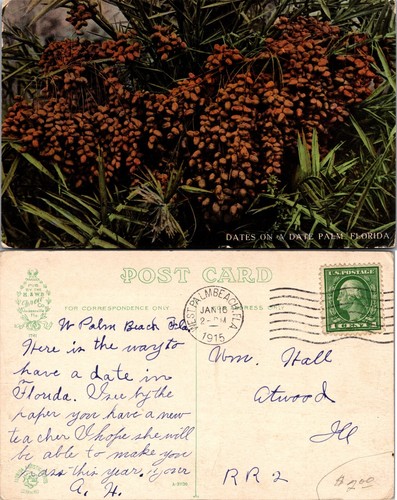 DATES ON A DATE PALM, FLORIDA
POST CARD
FOR CORRESPONDENCE ONLY
WEST PALM BEACH, FLA.
JAN 16
2- PM
1915
U.S. POSTAGE
1 CENT 1
W Palm Beach Fla
Here is the way to
have a date in
Florida. I see by the
paper you have a new
teacher I hope she will
be able to make you
pass this year, your
A. H.
Wm. Hall
Atwood
Ill
RR 2
$2.00